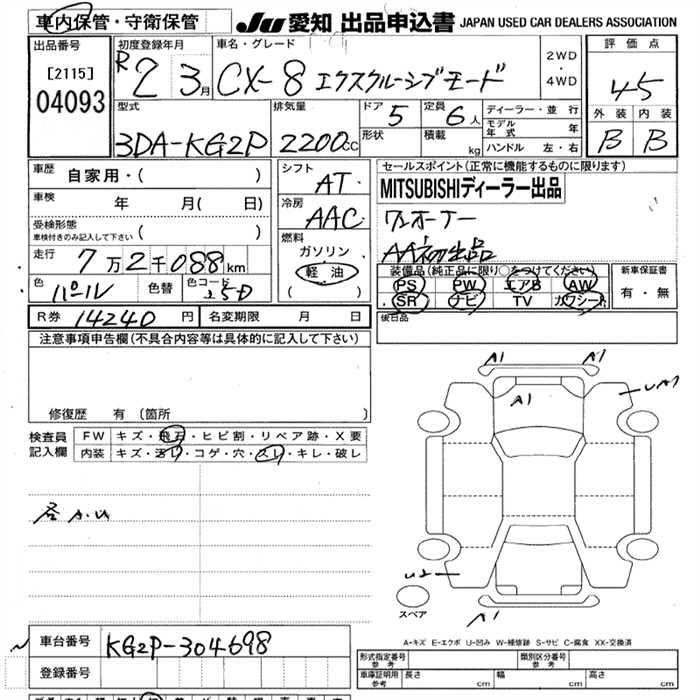 車内保管・守衛保管 JU 愛知 出品申込書 JAPAN USED CAR DEALERS ASSOCIATION
出品番号 [2115] 04093
初度登録年月 R2 3月
車名・グレード CX-8 エクスクルーシブモード
2WD・4WD
評価点 4.5
外装 B 内装 B
型式 3DA-KG2P
排気量 2200cc
ドア 5 定員 6人
形状 積載 kg
ディーラー・並行
モデル年式 年
ハンドル 左・右
車歴 自家用・( )
車検 年 月( 日)
受検形態 車検付きのみ記入して下さい ( )
走行 7万2千088km
色 パール 色替 色コード 25D
シフト AT
冷房 AAC
燃料 ガソリン 軽油 ( )
セールスポイント(正常に機能するものに限ります)
MITSUBISHIディーラー出品
ワンオーナー
AA初出品
装備品(純正品に限り○をつけてください)
PS PW エアB AW
SR ナビ TV カワシート
新車保証書
有・無
後日品
R券 14240円 名変期限 月 日
注意事項申告欄(不具合内容等は具体的に記入して下さい)
修復歴 有 〔箇所 〕
検査員記入欄
FW キズ・飛石・ヒビ割・リペア跡・X要
内装 キズ・汚レ・コゲ・穴・スレ・キレ・破レ
A.U
A1 A1
A1
UA1
U2
A1
スペア
A-キズ E-エクボ U-凹み W-補修跡 S-サビ C-腐食 XX-交換済
車台番号 KG2P-304698
登録番号
形式指定番号 参考 類別区分番号 参考
車庫証明用 参考 長さ cm 幅 cm 高さ cm